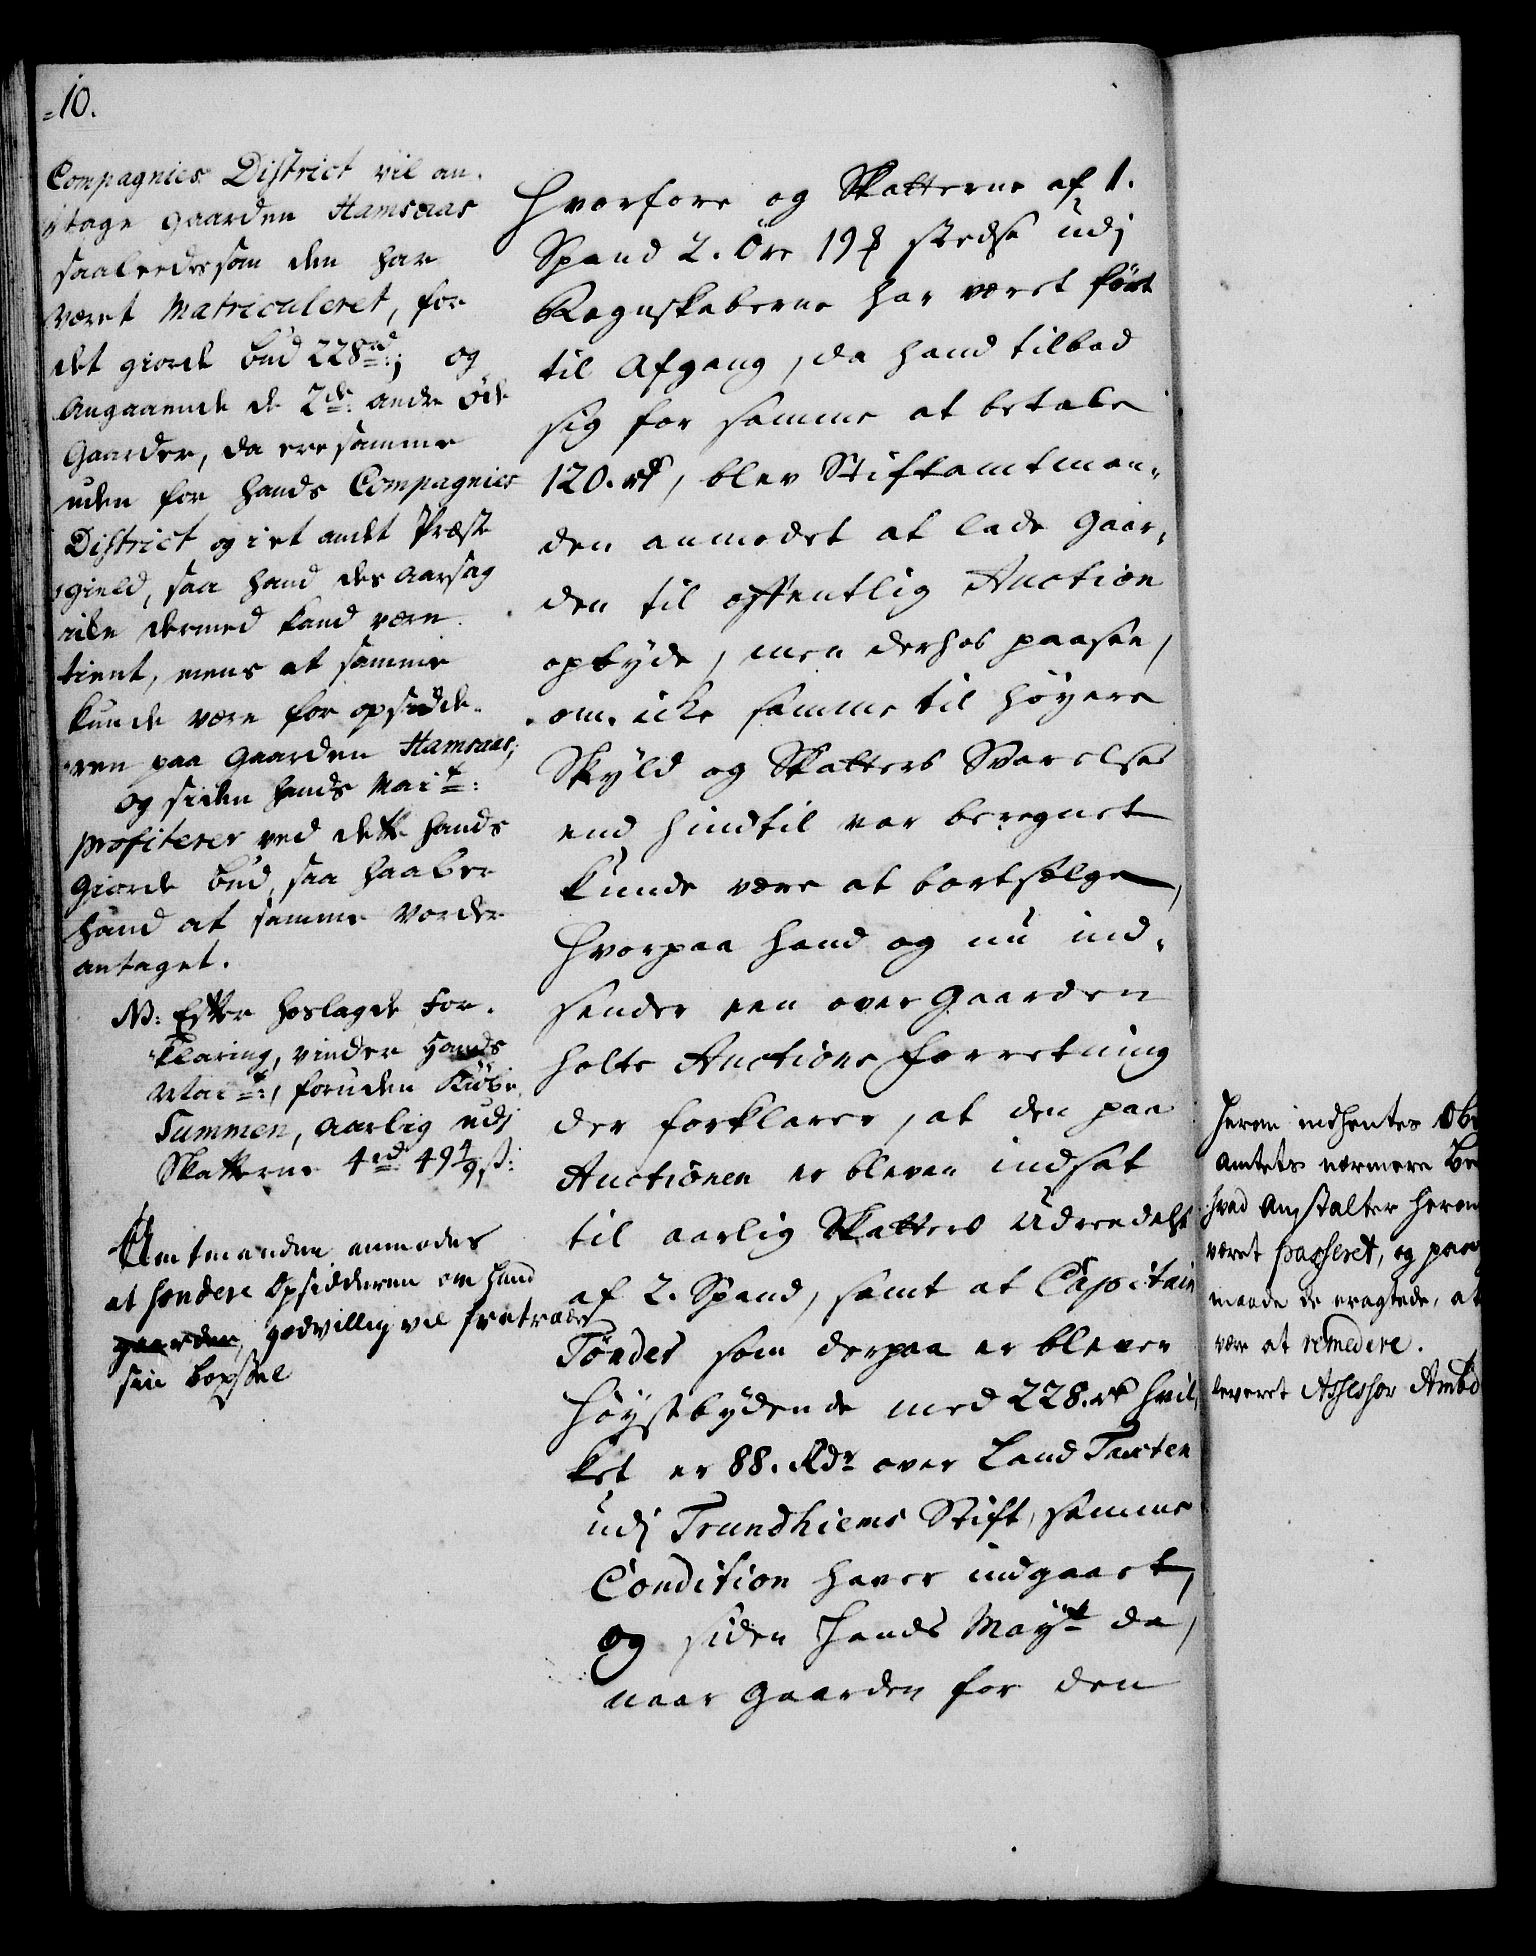 10.
Compagnies District vil an-
tage gaarden Hamsaas
saaledes som den har
været Matriculeret, for
det giorde bud 228 rd; og
Angaaende de 2de andre øde
Gaarder, da ere samme
uden for hands Compagnies
District og i et andt Præste
gield, saa hand des aarsag
icke dermed kand være
tient, mens at samme
kunde være for opsidde-
ren paa gaarden Hamsaas;
og siden hands Mait:
profiterer ved dette hands
Giorde bud, saa haaber
hand at samme vorder
antaget.
NB: Efter hoslagde For-
klaring, vinder Hands
Mait:, foruden Kiøbe
Summen, aarlig udj
Skatterne 4 rd 49 4/9 s:
Amtmanden anmodes
at hendere Opsidderen om hand
gaarden, godvillig vil fratræde
sin bøxsel
Hvorfore og Skatterne af 1.
Spand 2. Øre 19 stedse udj
Regnskaberne har været ført
til Afgang, da hand tilbød
sig for samme at betale
120. rd, blev Stiftamtman-
den anmodet at lade gaar-
den til offentlig Auction
opbyde, men derhos paasee,
om icke samme til høyere
Skyld og Skatters Svarelse
end hindtil var beregnet
kunde være at bortselge,
Hvorpaa hand og nu ind-
sender een over Gaarden
holte Auctions Forretning
der forklarer, at den paa
Auctionen er bleven indsat
til aarlig Skatters Udreedelse
af 2. Spand, samt at Capitain
Tønder som derpaa er bleven
Høystbydende med 228. rd hvil-
ket er 88. Rdr over Land Taxten
udj Trundhiems Stift, samme
Condition haver indgaaet,
og siden Hands Mayt da,
naar Gaarden for den
herom indhentes Ob
Amtets nærmere Be
hvad Anstalter herom
været passeret, og paa
maade de eragtede, at
være at remedere.
leveret Assessor Ambd